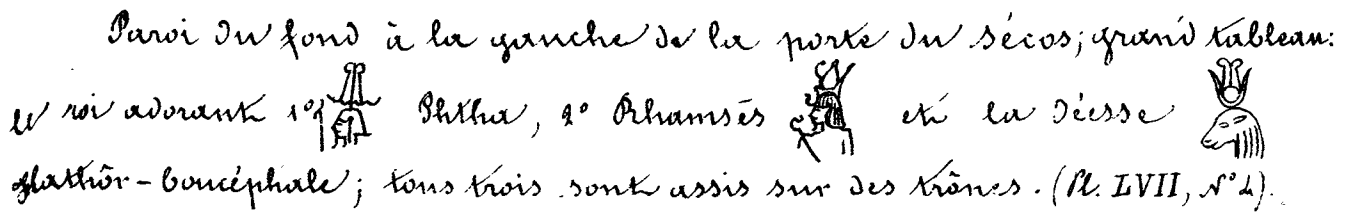 Paroi du fond à la gauche de la porte du sécos; grand tableau:
le roi adorant 1° Phtha, 2° Rhamsès et la déesse
Hathôr-boucéphale; tous trois sont assis sur des trônes. (Pl. LVII, N° 4).